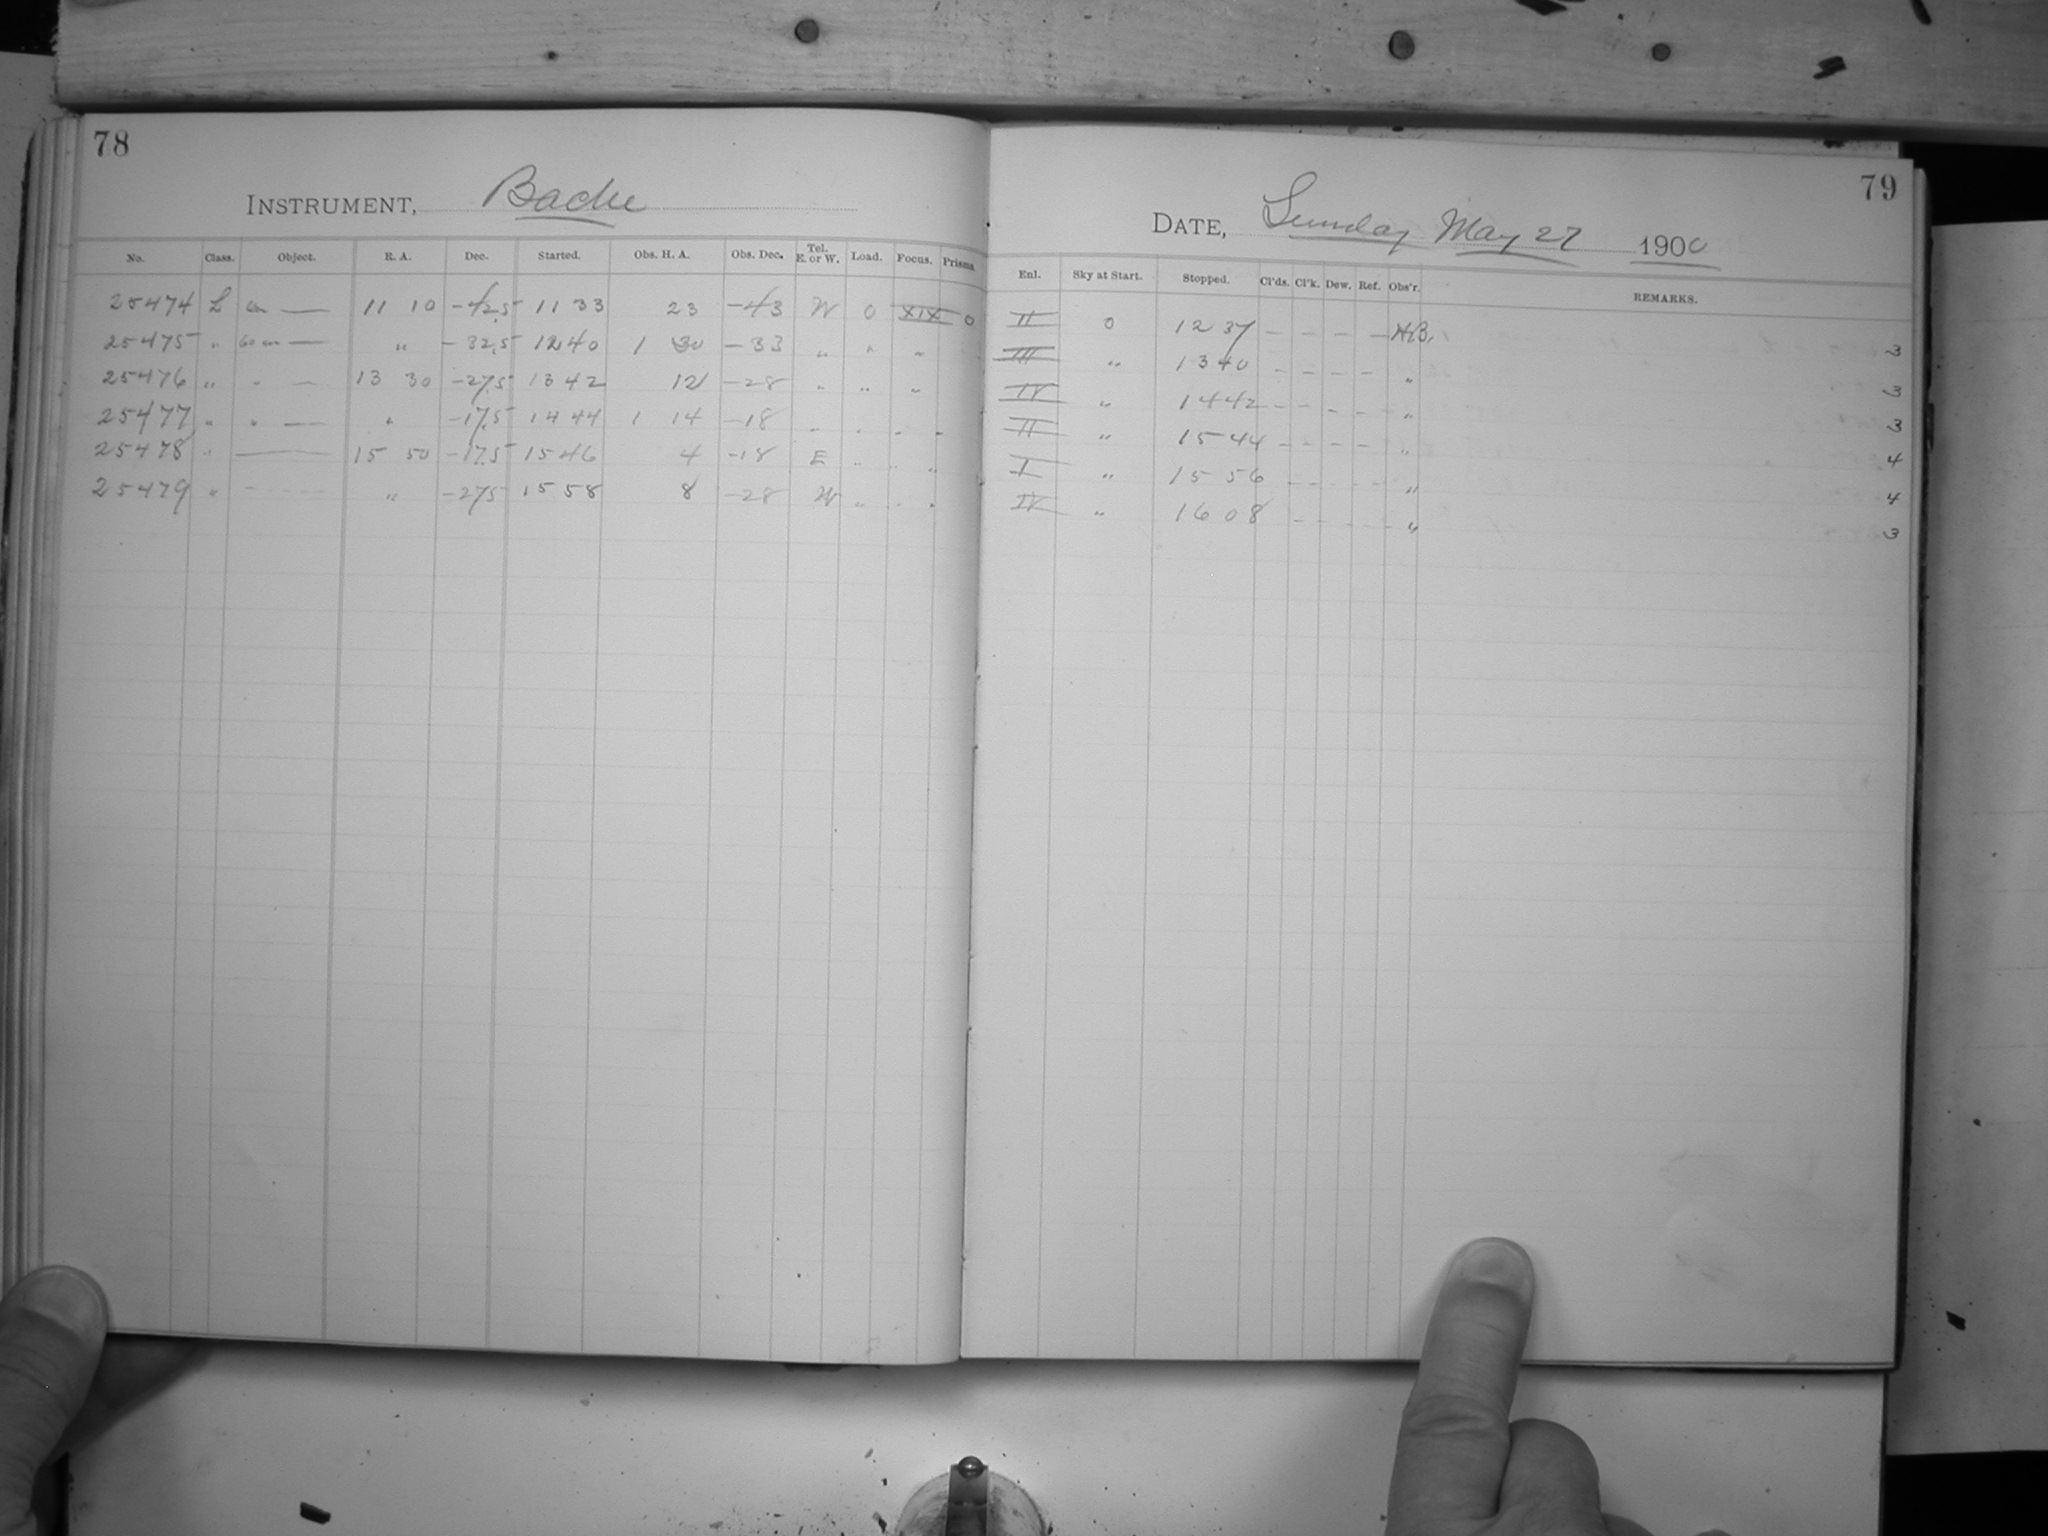 78
INSTRUMENT, Bache
No. Class. Object. R. A. Dec. Started. Obs. H. A. Obs. Dec. Tel. E. or W. Load. Focus. Prisms.
25474 L 11 10 -42.5 11 33 23 -43 W 0 XIX 0
25475 " 60 m — " -32.5 12 40 1 30 -33 " " "
25476 " " — 13 30 -27.5 13 42 12 -28 " " "
25477 " " — " -17.5 14 44 1 14 -18 " " " "
25478 " — 15 50 -17.5 15 46 4 -18 E " " "
25479 " - - - - " -27.5 15 58 8 -28 W " " "
79
DATE, Sunday May 27 1900
Enl. Sky at Start. Stopped. Cl'ds. Cl'k. Dew. Ref. Obs'r. REMARKS.
II 0 12 37 — — — — 3
III " 13 40 - - - - " 3
IV " 14 42 - - - - " 3
II " 15 44 - - - - " 4
I " 15 56 - - - - " 4
IV " 16 08 - - - - " 3